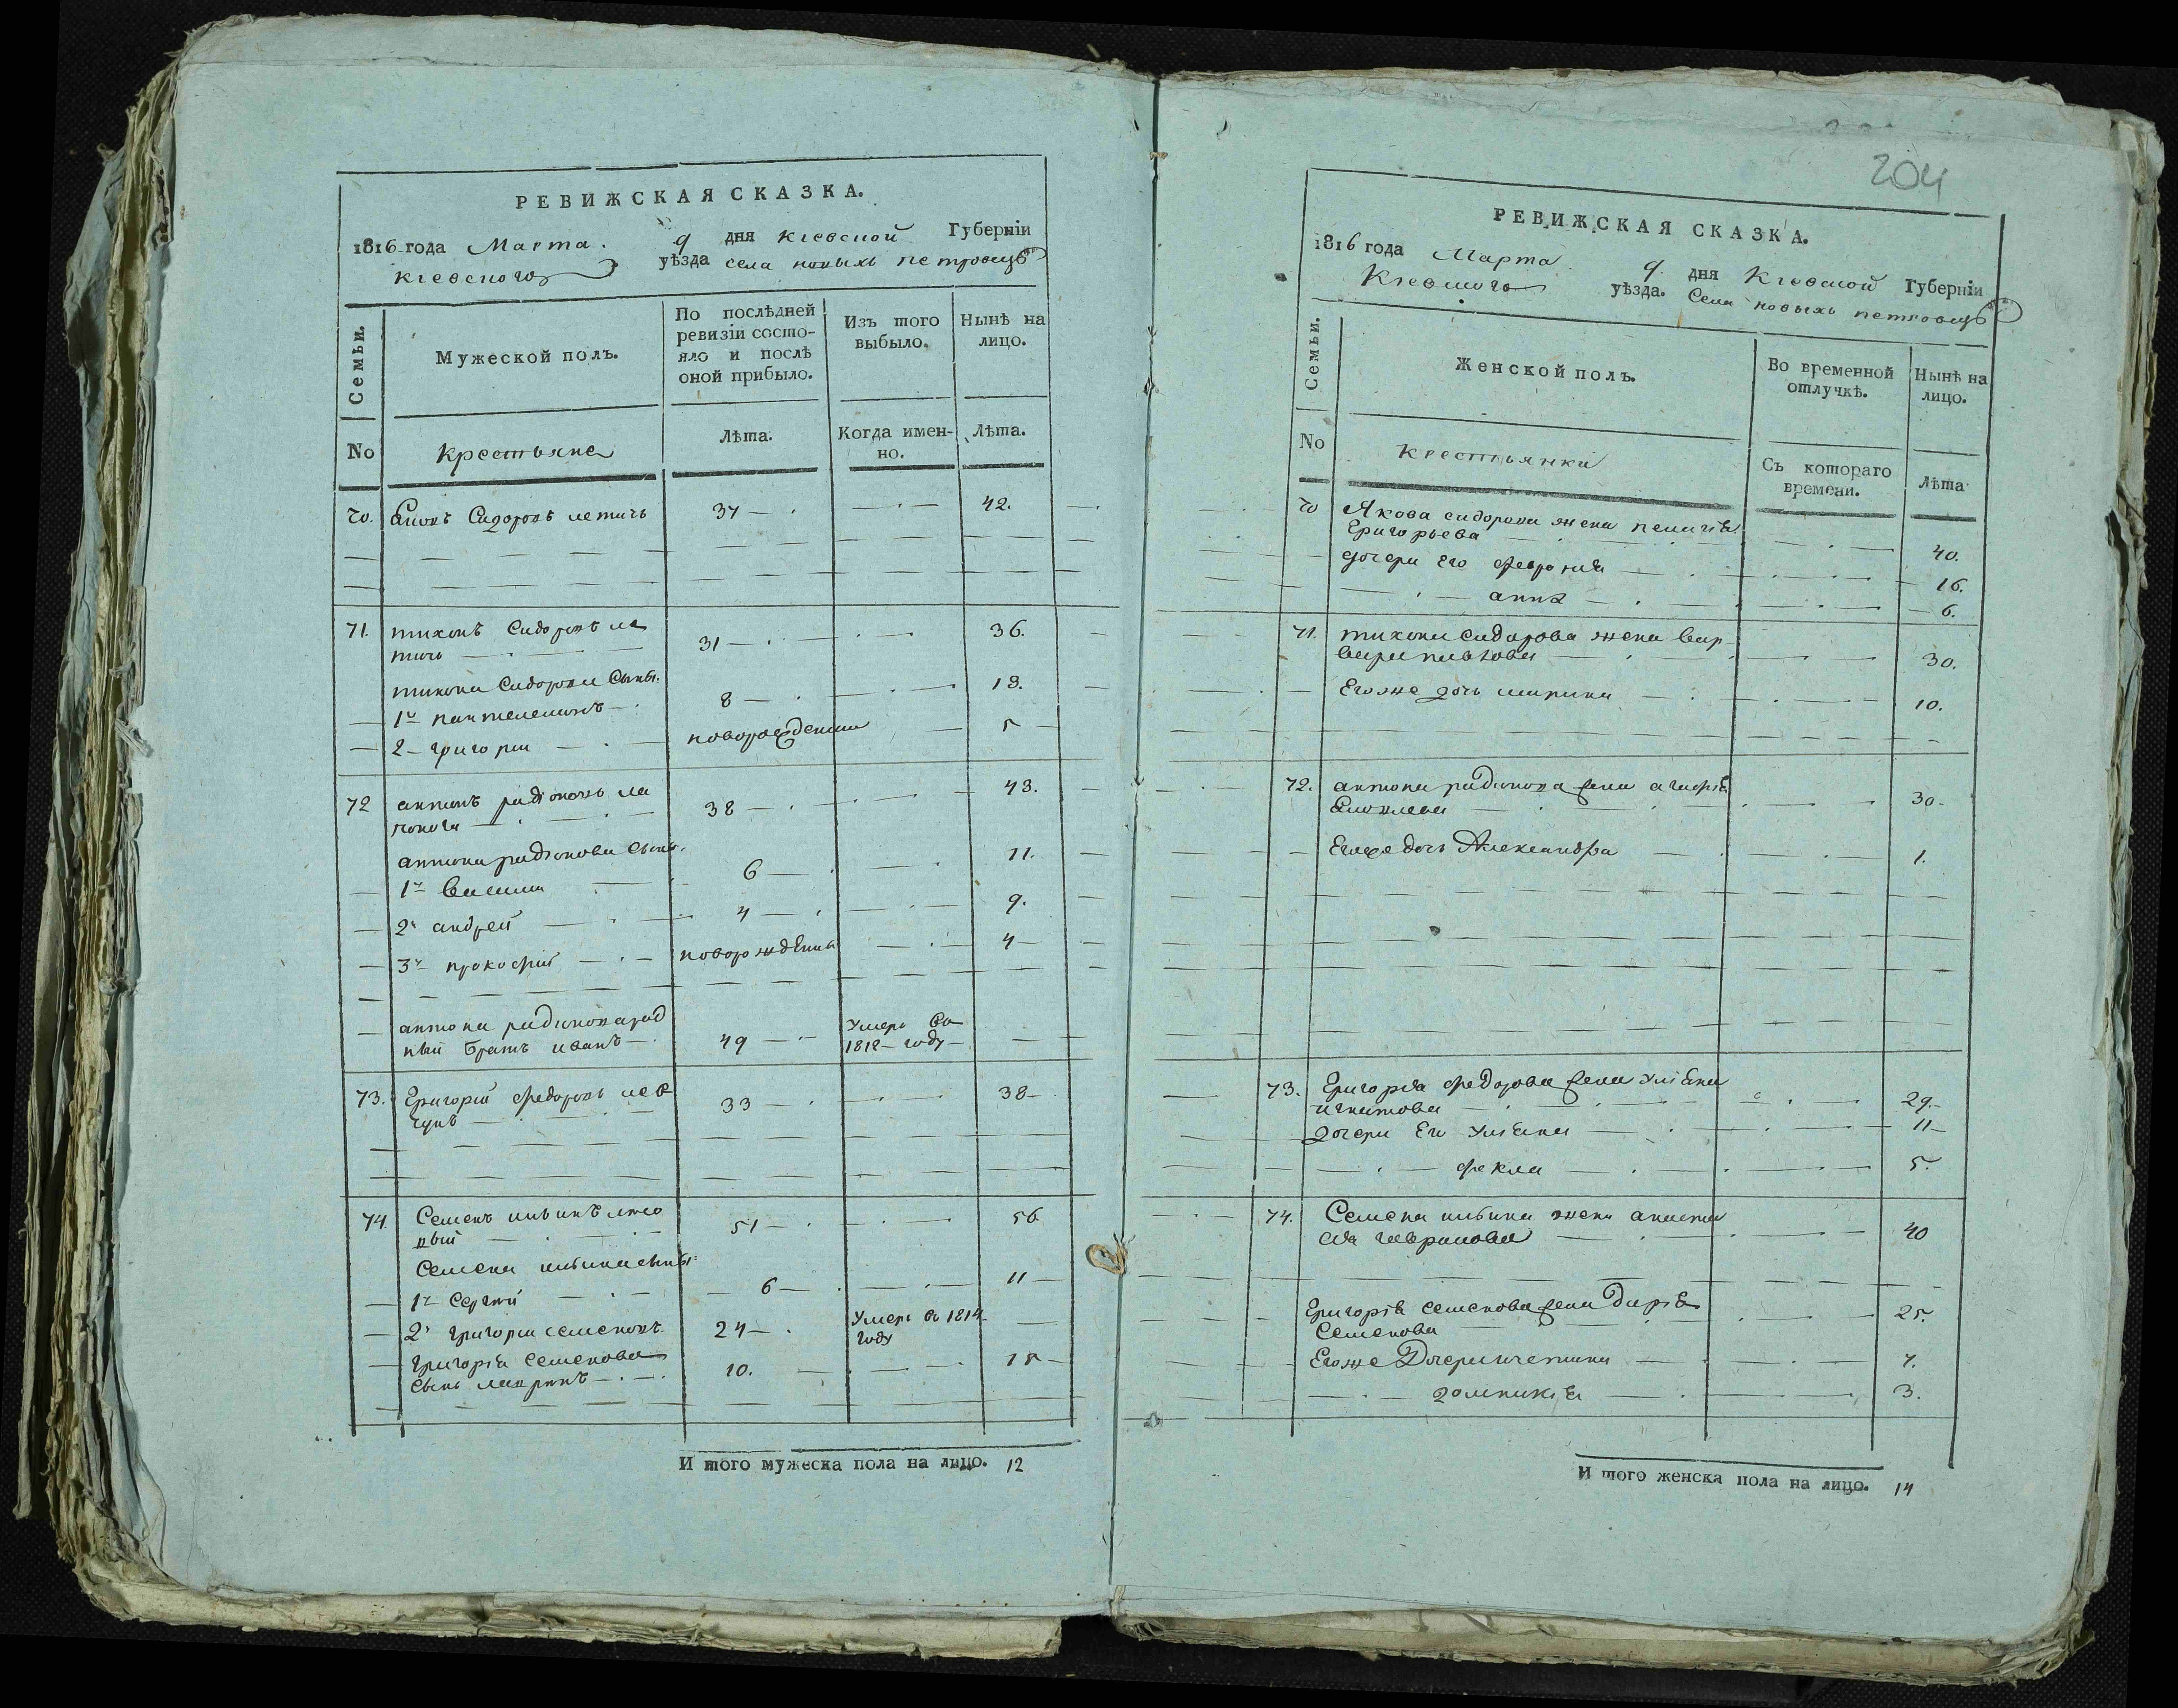 РЕВИЖСКАЯ СКАЗКА.
1816 года Марта. 9 дня Кіевской Губерніи
Кіевского уѣзда села новыхъ петровцъ
Семьи.
Мужеской полъ.
По послѣдней
ревизіи состо-
яло и послѣ
оной прибыло.
Изъ того
выбыло.
Нынѣ на
лицо.
No
крестьяне
Лѣта.
Когда имен-
но.
Лѣта.
70. Сидоровъ 37 42.
71. тихонъ Сидоровъ 31 36.
тихона Сидорова Сыны.
1й пантелемонъ 8 13.
2 григорій новорожденны 5
72 антонъ радіоновъ 38 43.
антона радіонова сыны.
1й Василій 6 11.
2й андрей 4 9.
3й прокофій новорожденны 4
антона радіонова род
ный братъ иванъ 49 Умеръ Въ
1812 году
73. Григорій федоровъ 33 38
74. Семенъ 51 56
Семена сыны:
1й Сергій 6 11
2й григорій семеновъ 24 Умеръ въ 1814
году
григорія Семенова
сынъ 10. 15
И того мужеска пола на лицо. 12
204
РЕВИЖСКАЯ СКАЗКА.
1816 года Марта 9 дня Кіевской Губерніи
Кіевского уѣзда. Села новыхъ петровцъ
Семьи.
Женской полъ.
Во временной
отлучкѣ.
Нынѣ на
лицо.
No
крестьянки
Съ котораго
времени.
Лѣта
70 Якова сидорова жена
Григорьева 40.
дочери Его феврония 16.
анна 6.
71. тихона Сидорова жена Вар
вара 30.
Егоже дочь марина 10.
72. антона радионова жена агафія
30.
Егоже дочь Александра 1.
73. Григорія федорова жена Уліана
игнатова 29.
дочери Его Уліана 11
фекла 5.
74. Семена жена анаста
сія гаврилова 40
Григорія семенова жена Дарія
Семенова 25.
Егоже Дочери 7.
домникія 3.
И того женска пола на лицо. 14